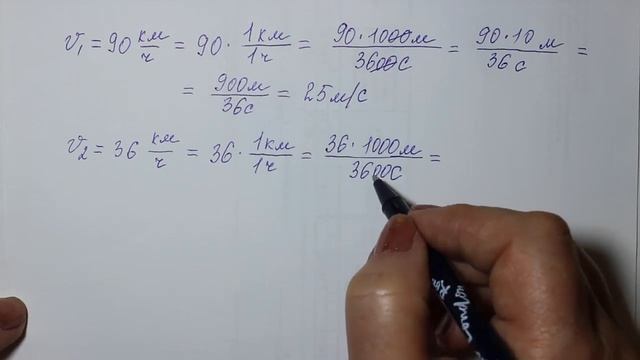 v₁ = 90 км/ч = 90 · 1км/1ч = 90 · 1000м/3600с = 90 · 10 м/36 с =
= 900м/36с = 25м/с
v₂ = 36 км/ч = 36 · 1км/1ч = 36 · 1000м/3600с =